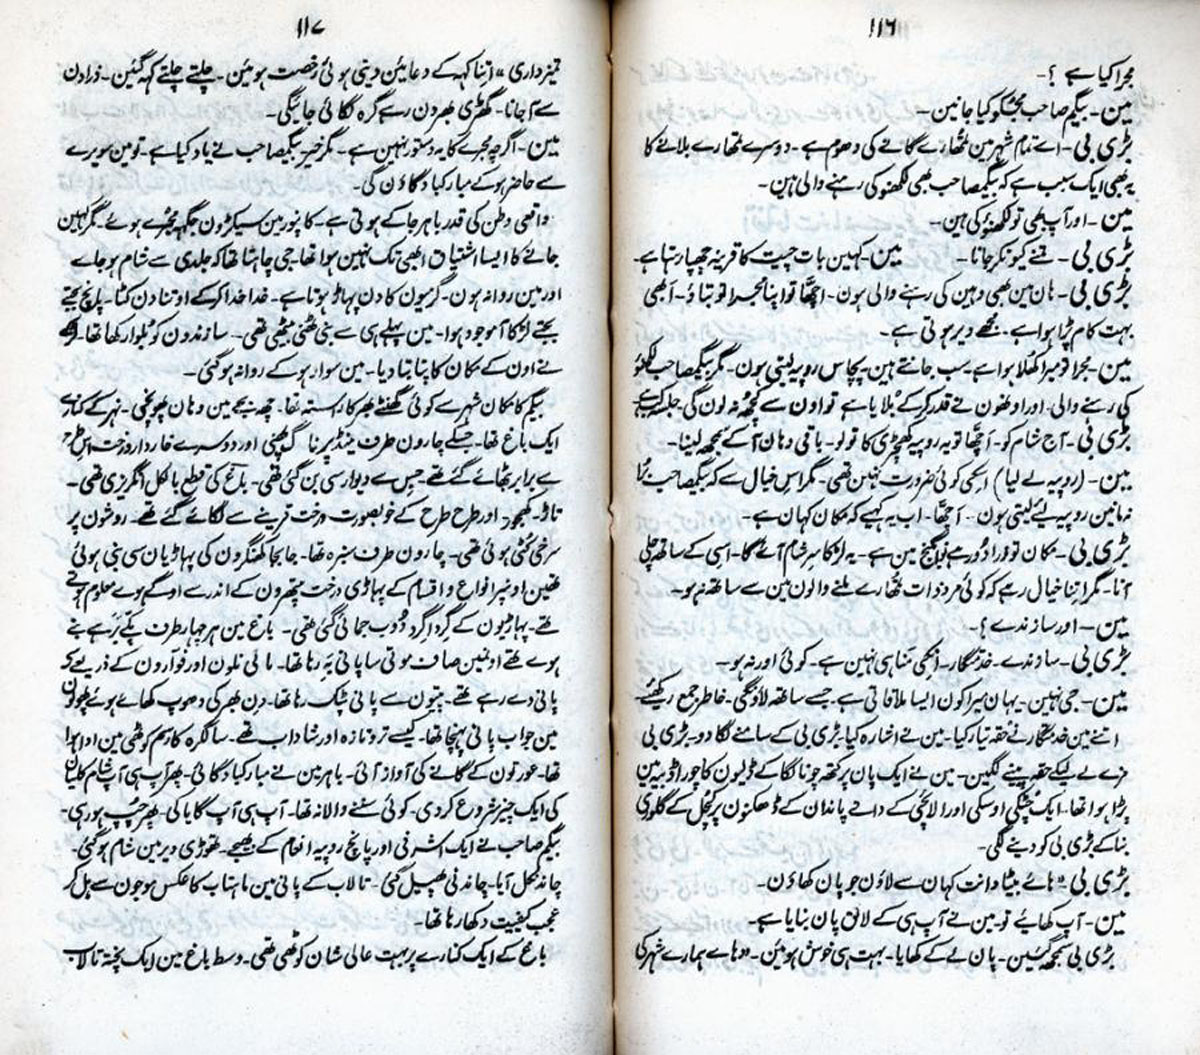 ۱۱۶
مجرا کیا ہے ؟۔
مین۔ بیگم صاحب مجھکو کیا جانین۔
بڑی بی۔ اے تمام شہر مین تمھارے گانے کی دھوم ہے۔ دوسرے تمھارے بلانے کا
یہ بھی ایک سبب ہے کہ بیگم صاحب بھی لکھنؤ کی رہنے والی ہین۔
مین۔ اور آپ بھی تو لکھنؤ کی ہین۔
بڑی بی۔ تمنے کیونکر جانا۔ مین۔ کہین بات چیت کا قرینہ چھپا رہتا ہے۔
بڑی بی۔ ہان مین بھی وہین کی رہنے والی ہون۔ اچھا تو اپنا مجرا تو بتاؤ۔ ابھی
بہت کام پڑا ہوا ہے۔ مجھے دیر ہوتی ہے۔
مین۔ مجرا تو میرا کھلا ہوا ہے سب جانتے ہین۔ پچاس روپیہ لیتی ہون۔ مگر بیگم صاحب لکھنؤ
کی رہنے والی۔ اور اونھون نے قدر کر کے بلایا ہے تو اون سے کچھ نہ لون گی۔ جلسہ کب ہے
بڑی بی۔ آج شام کو۔ اچھا تو یہ روپیہ کھچڑی کا تو لو۔ باقی وہان آ کے سمجھ لینا۔
مین۔ (روپیہ لے لیا) اسکی کوئی ضرورت نہین تھی۔ مگر اس خیال سے کہ بیگم صاحب برا
نہ مانین روپیہ لے لیتی ہون۔ اچھا۔ اب یہ کہیے کہ مکان کہان ہے۔
بڑی بی۔ مکان تو ذرا دور ہے نواب گنج مین ہے۔ یہ لڑکا سر شام آئے گا۔ اسی کے ساتھ چلی
آنا۔ مگر اتنا خیال رہے کہ کوئی مرد ذات تمھارے ملنے والون مین سے ساتھ نہ ہو۔
مین۔ اور سازندے ؟۔
بڑی بی۔ سازندے۔ خدمتگار۔ انکی مناہی نہین ہے۔ کوئی اور نہ ہو۔
مین۔ جی نہین۔ یہان میرا کون ایسا ملاقاتی ہے جسے ساتھ لاؤنگی۔ خاطر جمع رکھئے۔
اتنے مین خدمتگار نے حقہ تیار کیا۔ مین نے اشارہ کیا۔ بڑی بی کے سامنے لگا دو۔ بڑی بی
مزے لے لیکے حقہ پینے لگین۔ مین نے ایک پان پر کتھ چونا لگا کے ڈلیون کا چورا ڈبیہ مین
پڑا ہوا تھا۔ ایک چٹکی اوسکی اور الائچی کے دانے پاندان کے ڈھکنون پر کچل کے گلوری
بنا کے بڑی بی کو دینے لگی۔
بڑی بی۔ "ہائے بیٹا دانت کہان سے لاؤن جو پان کھاؤن۔
مین۔ آپ کھایئے تو۔ مین نے آپ ہی کے لائق پان بنایا ہے۔
بڑی بی سمجھ گئین۔ پان لے کے کھایا۔ بہت ہی خوش ہوئین۔ "ہاے ہمارے شہر کی
۱۱۷
تمیزداری" اتنا کہہ کے دعایئن دیتی ہوئی رخصت ہوئین۔ چلتے چلتے کہہ گئین۔ ذرا دن
سے آ جانا۔ گھڑی بھر دن رہے گرہ لگائی جائیگی۔
مین۔ اگرچہ مجرے کا یہ دستور نہین ہے۔ مگر خیر بیگم صاحب نے یاد کیا ہے۔ تو مین سویرے
سے حاضر ہو کے مبارکباد گاؤن گی۔
واقعی وطن کی قدر باہر جا کے ہوتی ہے۔ کانپور مین سیکڑون جگہ مجرے ہوئے۔ مگر کہین
جانے کا ایسا اشتیاق ابھی تک نہین ہوا تھا۔ جی چاہتا تھا کہ جلدی سے شام ہو جاے
اور مین روانہ ہون۔ گرمیون کا دن پہاڑ ہوتا ہے۔ خدا خدا کر کے اوتنا دن کٹا۔ پانچ بجتے
بجتے لڑکا آ موجود ہوا۔ مین پہلے ہی سے بنی ٹھنی بیٹھی تھی۔ سازندون کو بلوا رکھا تھا۔ لڑکے
نے اون کے مکان کا پتا بتا دیا۔ مین سوار ہو کے روانہ ہو گئی۔
بیگم کا مکان شہر سے کوئی گھنٹے بھر کا رستہ تھا۔ چھ بجے مین وہان پہونچی۔ نہر کے کنارے
ایک باغ تھا۔ جسکے چارون طرف مینڈ پر ناگ پھنی اور دوسرے خاردار درخت اس طرح
سے برابر بٹھائے گئے تھے۔ جس سے دیوار سی بن گئی تھی۔ باغ کی قطع بالکل انگریزی تھی۔
تاڑ۔ کھجور۔ اور طرح طرح کے خوبصورت درخت قرینے سے لگائے گئے تھے۔ روشون پر
سرخی کٹی ہوئی تھی۔ چارون طرف سبزہ تھا۔ جا بجا کھنگرون کی پہاڑیان سی بنی ہوئی
تھین اونپر انواع و اقسام کے پہاڑی درخت پتھرون کے اندر سے اوگے ہوے معلوم ہوتے
تھے۔ پہاڑیون کے گرداگرد دوب جمائی گئی تھی۔ باغ مین ہر چہار طرف پکے برہے بنے
ہوے تھے اونمین صاف موتی سا پانی بہ رہا تھا۔ مالی نلون اور فوارون کے ذریعے سے
پانی دے رہے تھے۔ پتیون سے پانی ٹپک رہا تھا۔ دن بھر کی دھوپ کھائے ہوئے پھولون
مین جو اب پانی پہنچا تھا۔ کیسے تر و تازہ اور شاداب تھے۔ سالگرہ کا رسم کوٹھی مین ادا ہوا
تھا۔ عورتون کے گانے کی آواز آئی۔ باہر مین نے مبارکباد گائی۔ پھر آپ ہی آپ شام کلیان
کی ایک چیز شروع کر دی۔ کوئی سننے والا نہ تھا۔ آپ ہی آپ گایا کی۔ پھر چپ ہو رہی۔
بیگم صاحب نے ایک اشرفی اور پانچ روپیہ انعام کے بھیجے۔ تھوڑی دیر مین شام ہو گئی۔
چاند نکل آیا۔ چاندنی پھیل گئی۔ تالاب کے پانی مین ماہتاب کا عکس موجون سے ہل کر
عجب کیفیت دکھا رہا تھا۔
باغ کے ایک کنارے پر بہت عالی شان کوٹھی تھی۔ وسط باغ مین ایک پختہ تالاب